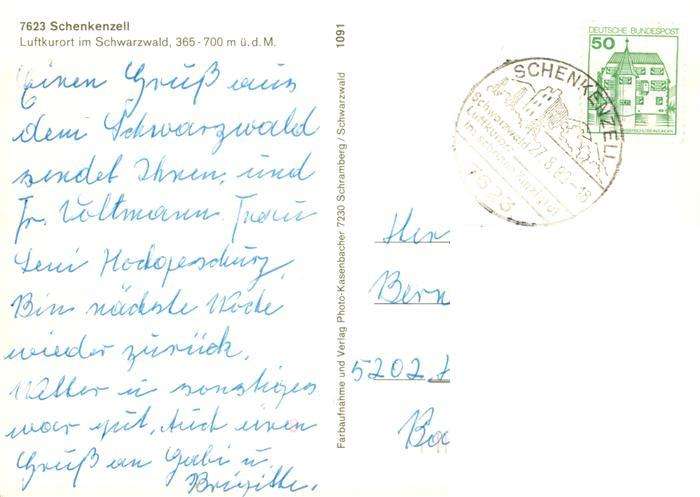 7623 Schenkenzell
Luftkurort im Schwarzwald, 365-700 m ü.d.M.
Einen Gruß aus
dem Schwarzwald
sendet Ihnen, und
Fr. Voltmann Frau
Hodgeschurz,
Bin nächste Woche
wieder zurück.
Wetter u sonstiges
war gut. Auch einen
Gruß an Gabi u.
Brigitte.
1091
Farbaufnahme und Verlag Photo-Kasenbacher 7230 Schramberg / Schwarzwald
DEUTSCHE BUNDESPOST
50
SCHENKENZELL
Schwarzwald 27.8.80-18
Luftkurort
im schönen Kinzigtal
7623
Her
Bern
5202
Ba